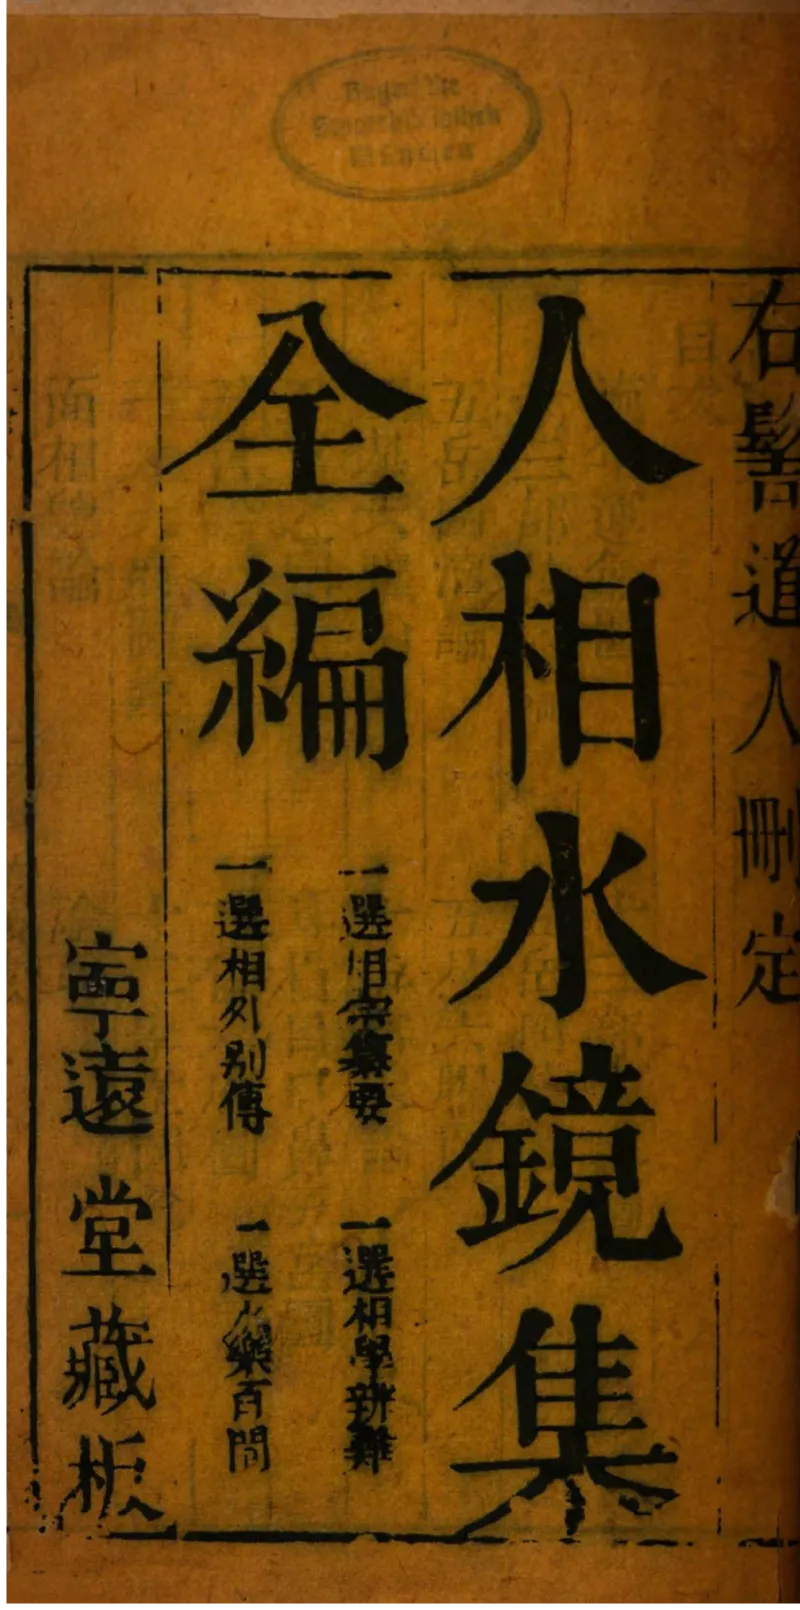 右髻道人刪定
人相水鏡集
全編
一選旧宗纂要
一選相學辨難
一選相外別傳
一選水樂百問
寧遠堂藏板